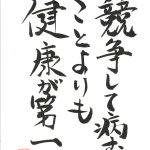 競争して病む
ことよりも
健康が第一